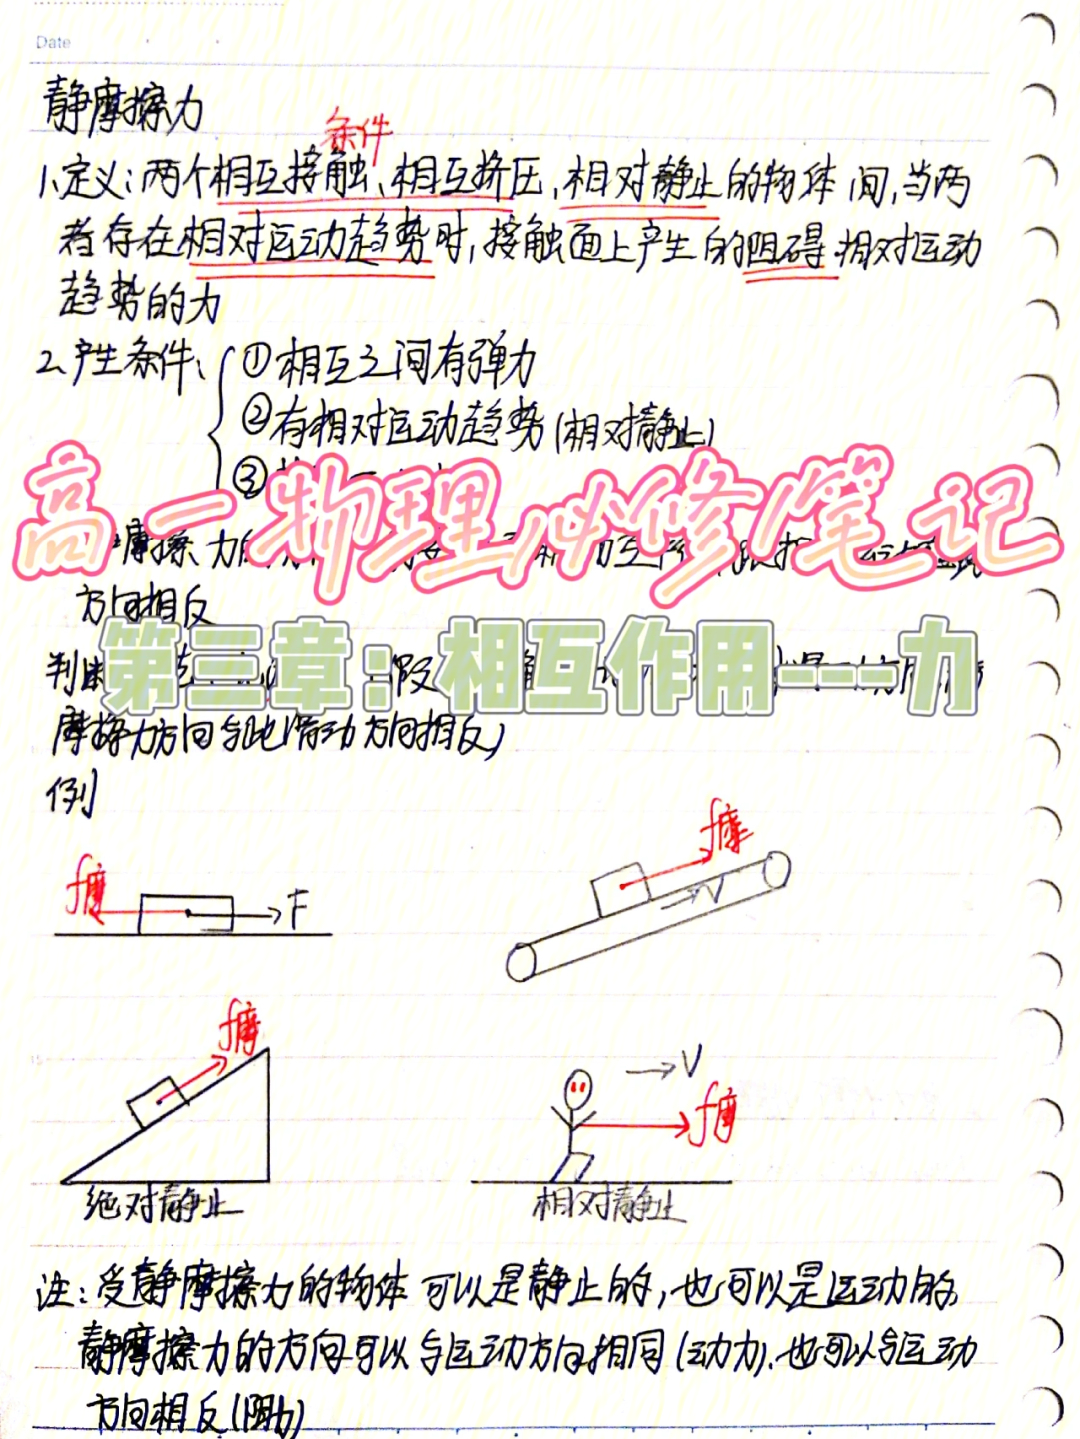 Date
静摩擦力
条件
1.定义：两个相互接触、相互挤压，相对静止的物体间，当两
者存在相对运动趋势时，接触面上产生的阻碍相对运动
趋势的力
2.产生条件：①相互之间有弹力
②有相对运动趋势(相对静止)
③
高一物理必修1笔记
摩擦力的
方向相反
第三章：相互作用---力
判断
摩擦力方向与此滑动方向相反)
例
f摩
f摩 F
V
f摩
V
f摩
绝对静止 相对静止
注：受静摩擦力的物体可以是静止的，也可以是运动的，
静摩擦力的方向可以与运动方向相同(动力)，也可以与运动
方向相反(阻力)